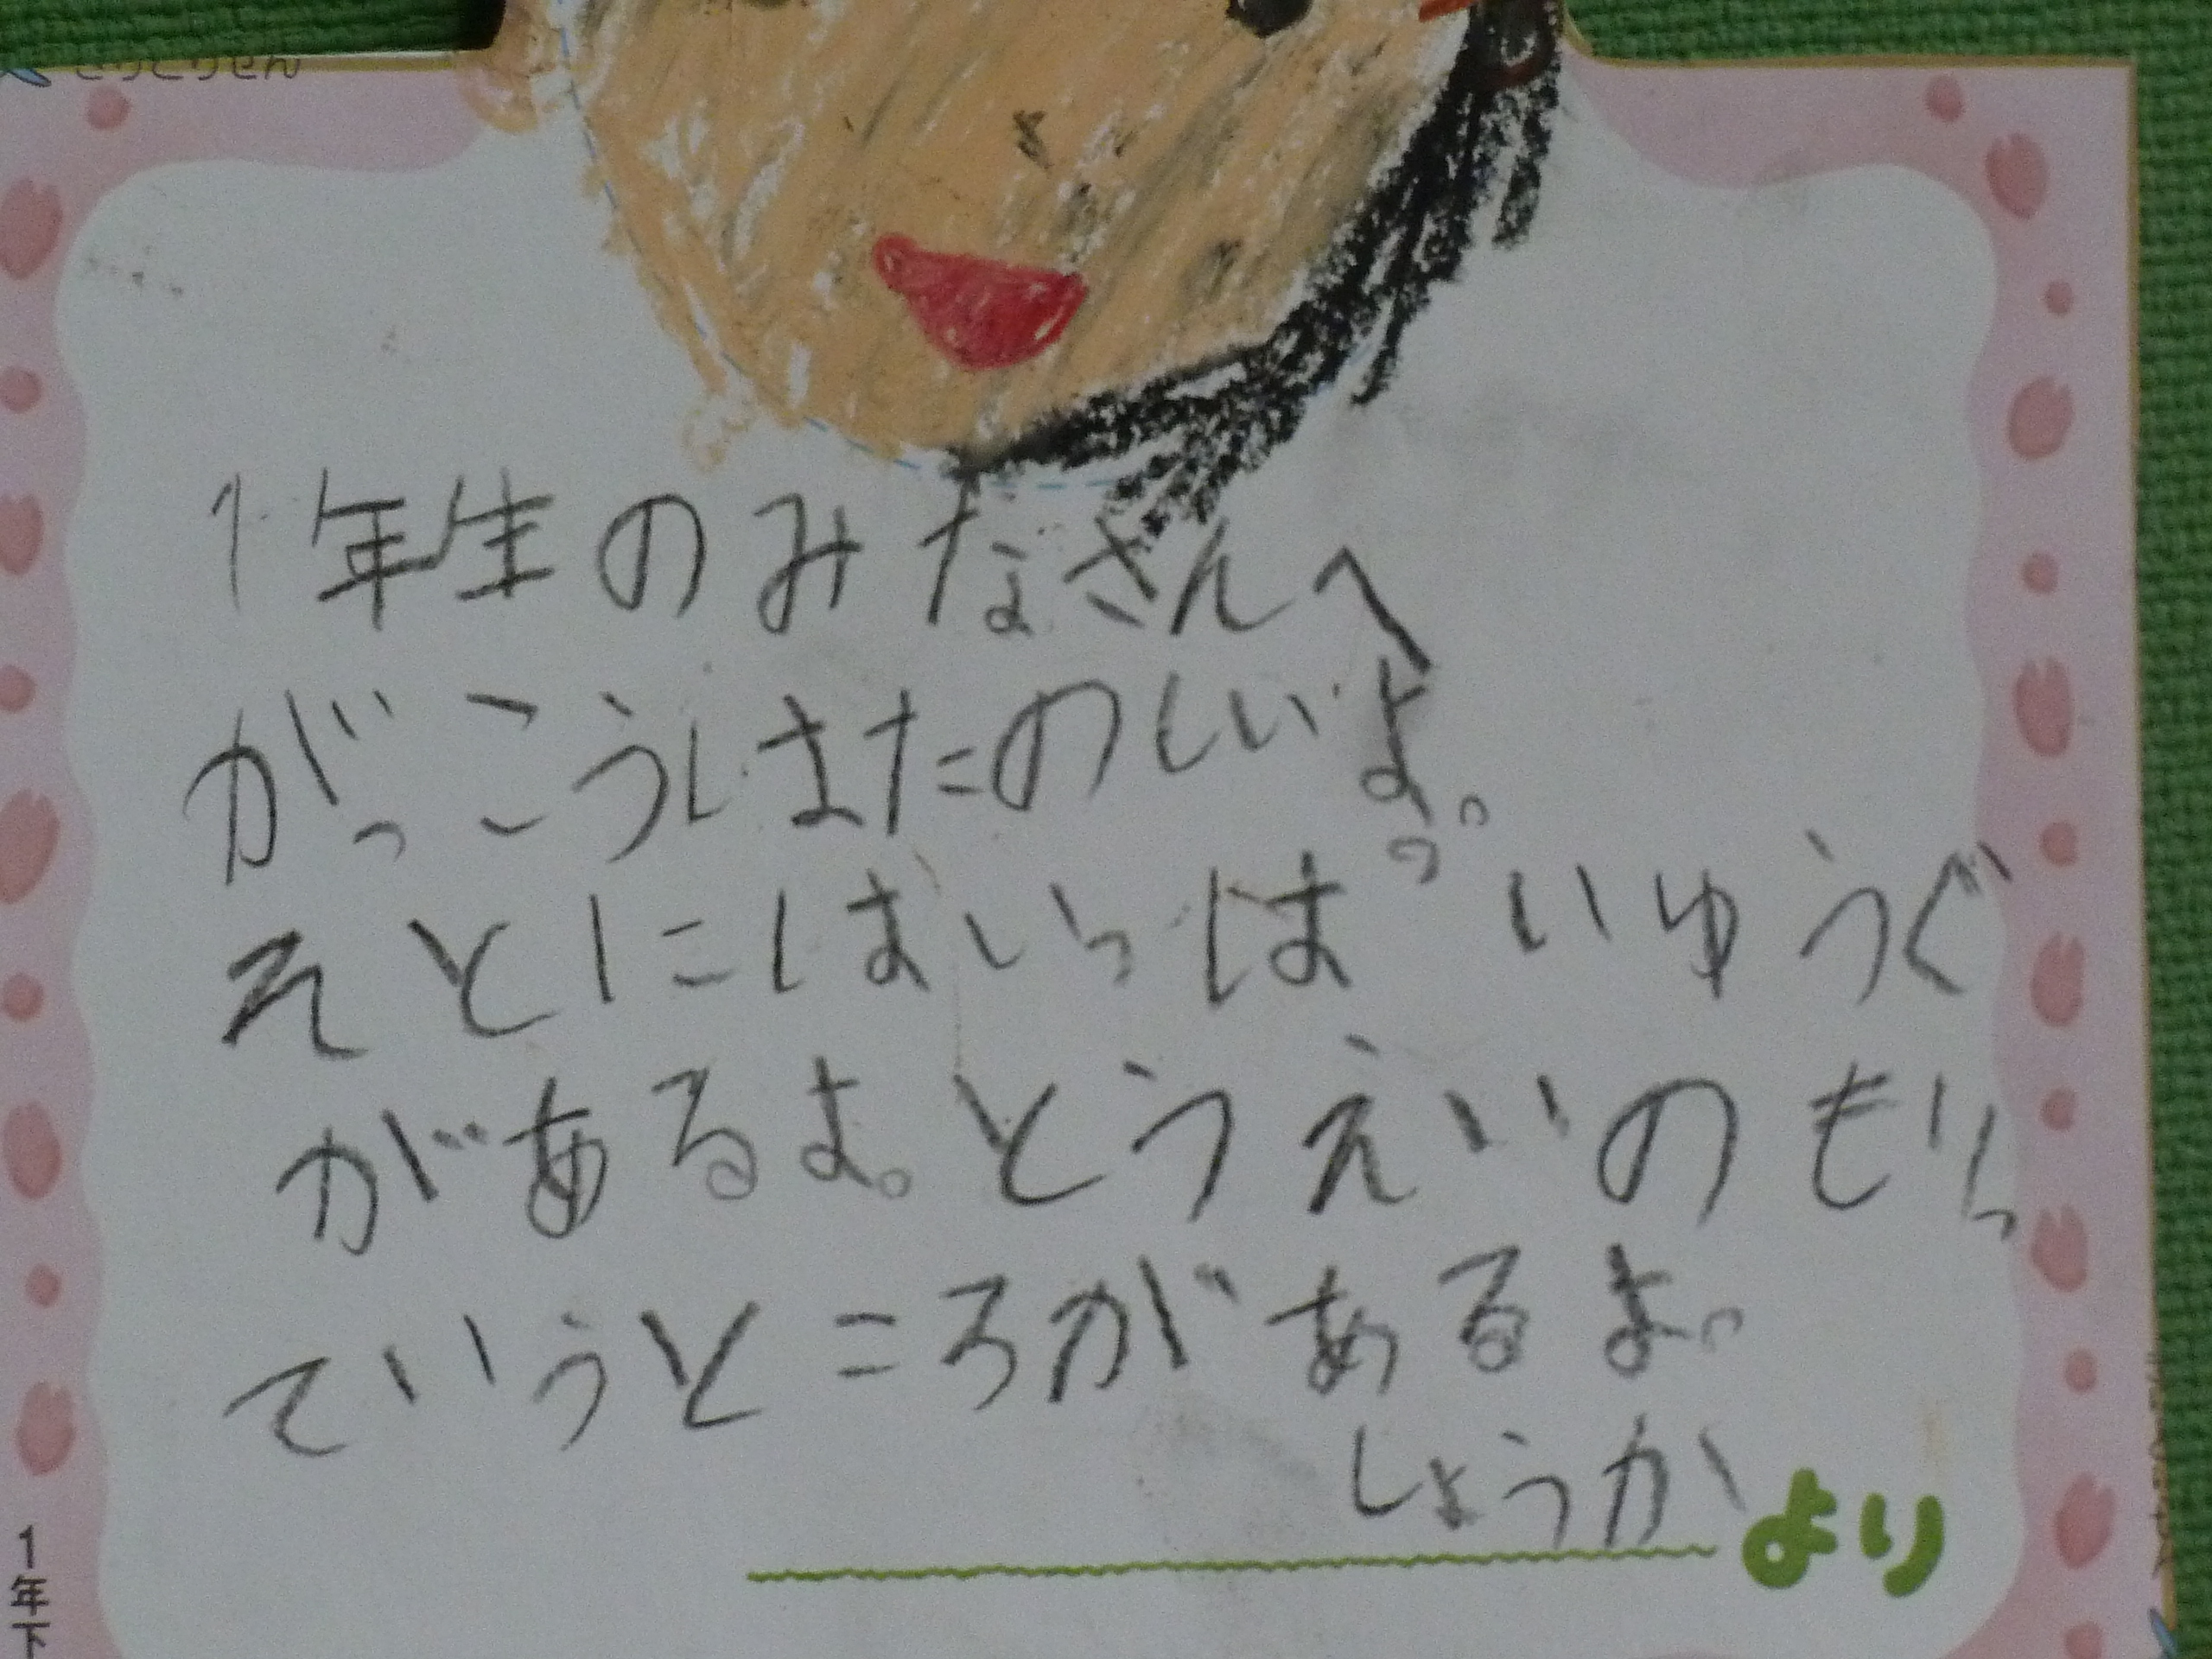 きりとりせん
1年生のみなさんへ
がっこうはたのしいよ。
そとにはいっぱいゆうぐ
があるよ。とうえいのもりっ
ていうところがあるよ。
しょうかより
1年下